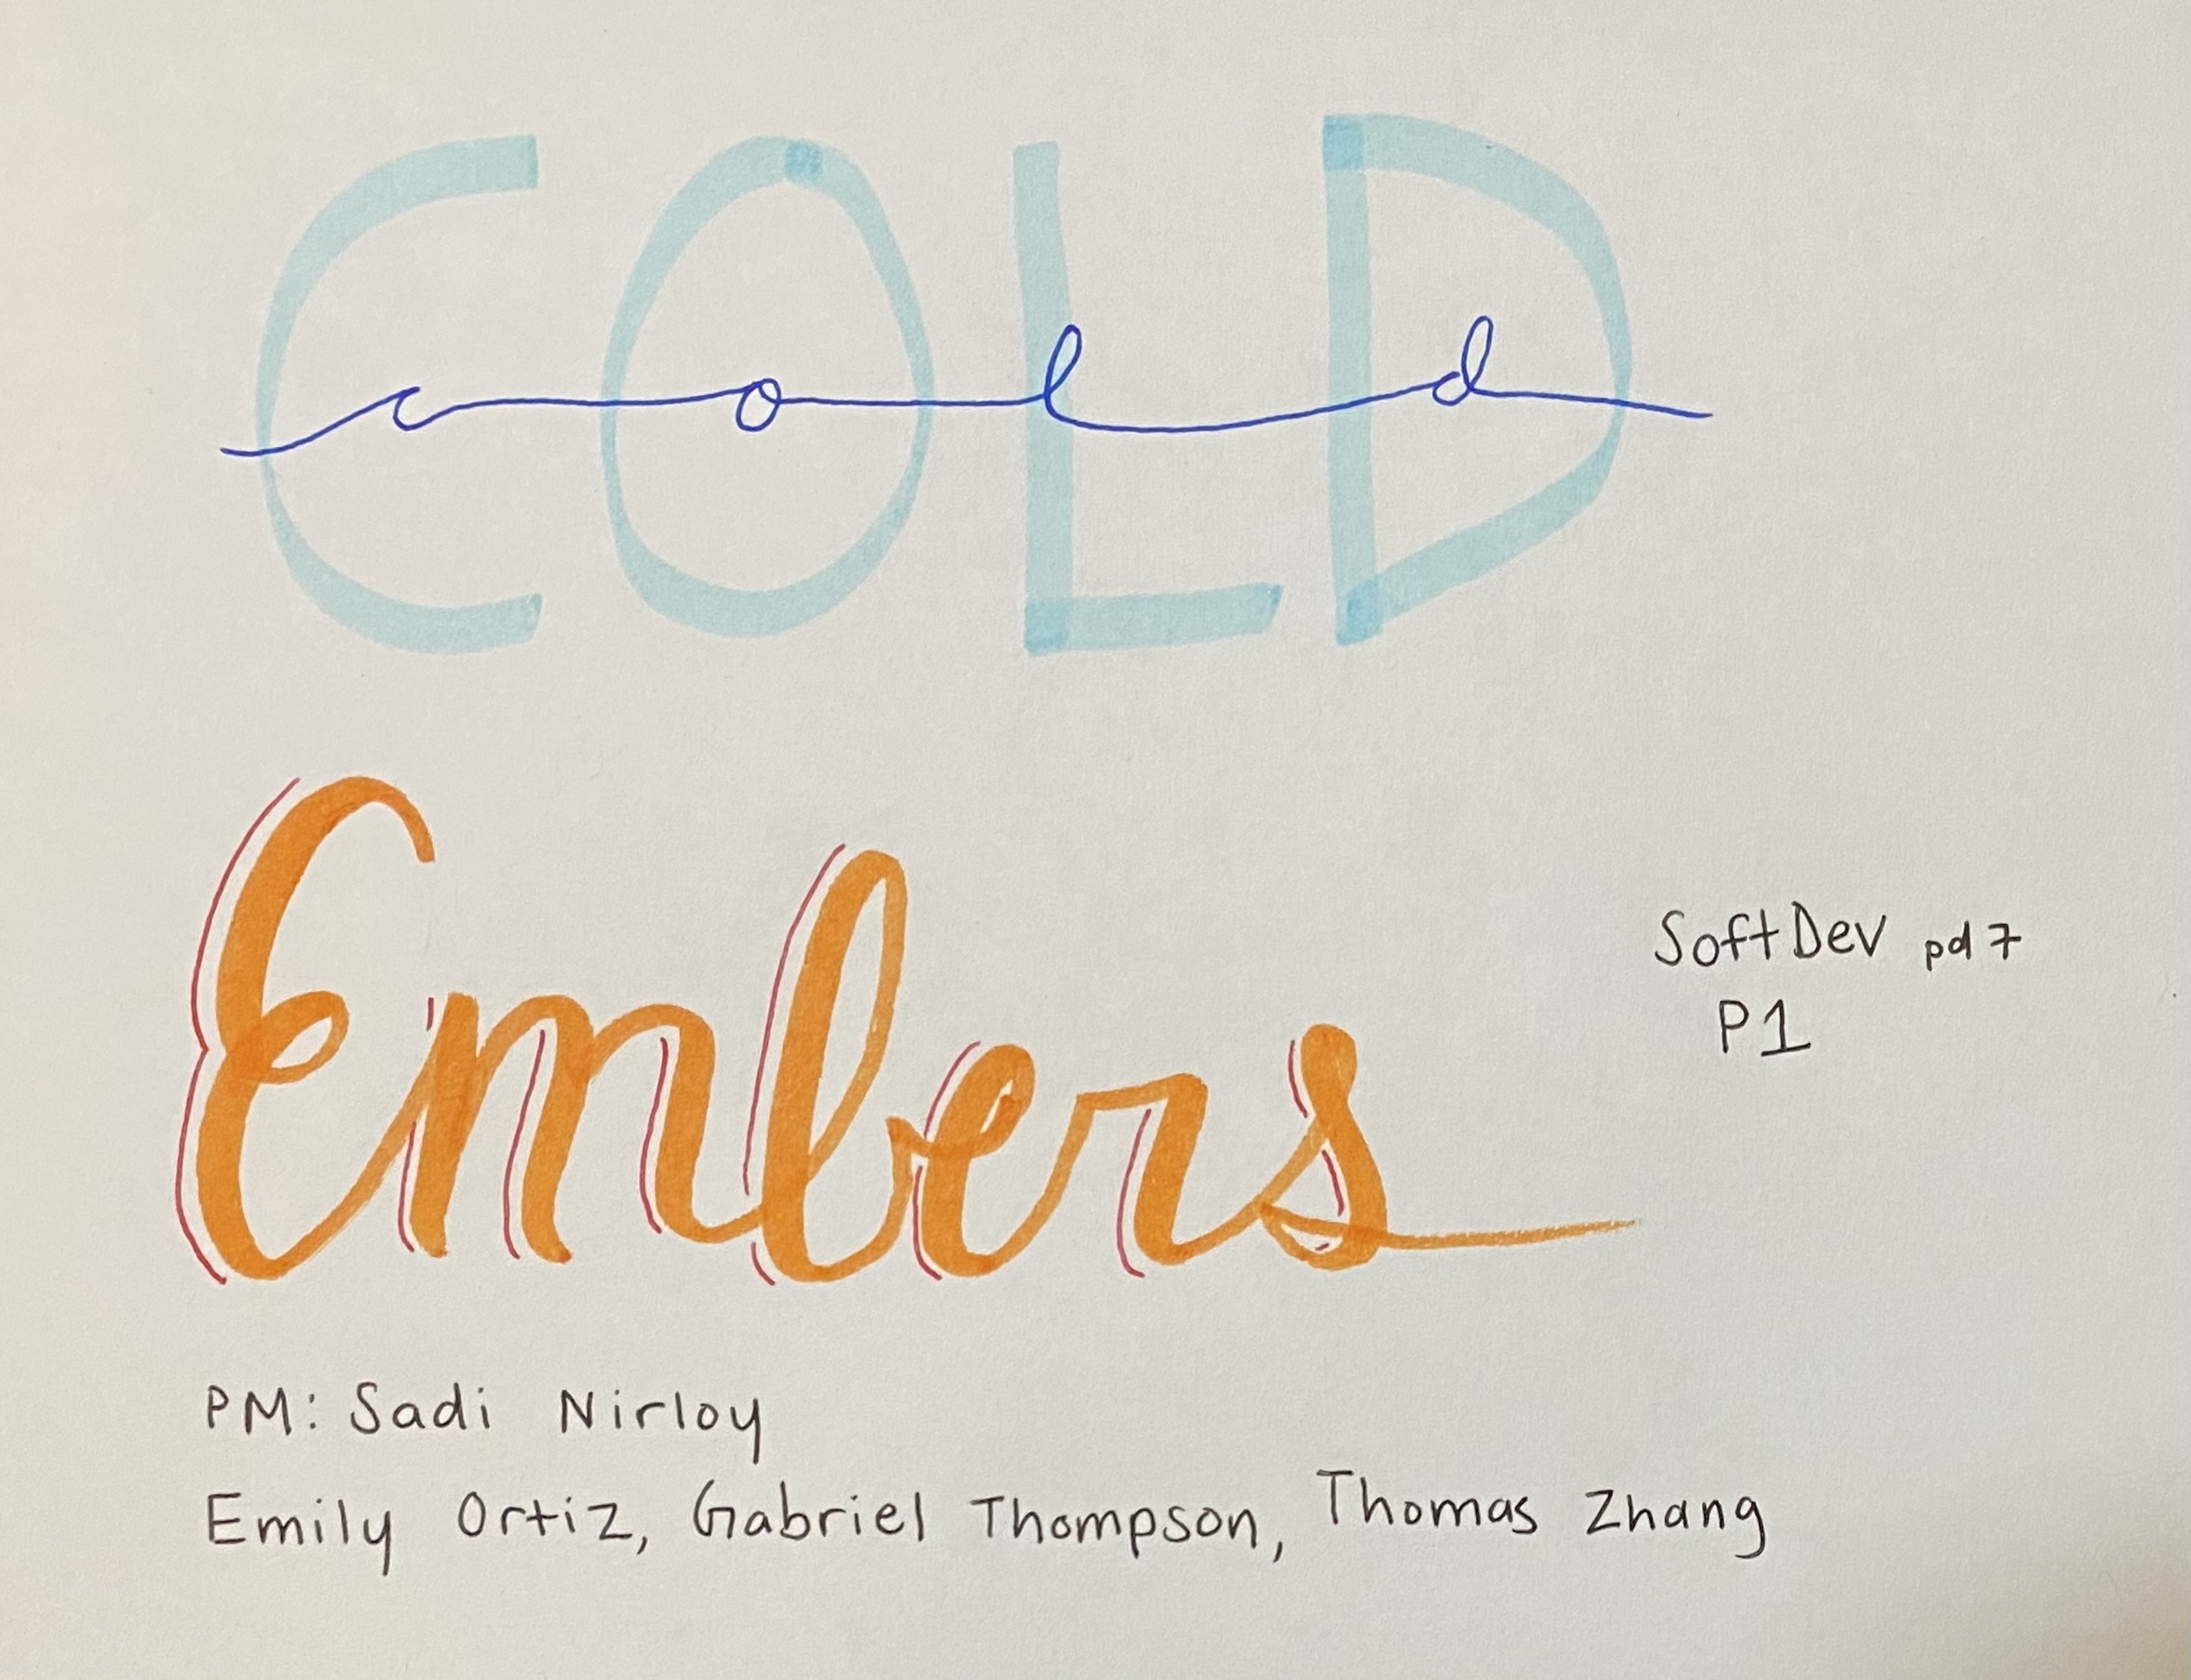 COLD
cold
Embers
SoftDev pd 7
P1
PM: Sadi Nirloy
Emily Ortiz, Gabriel Thompson, Thomas Zhang